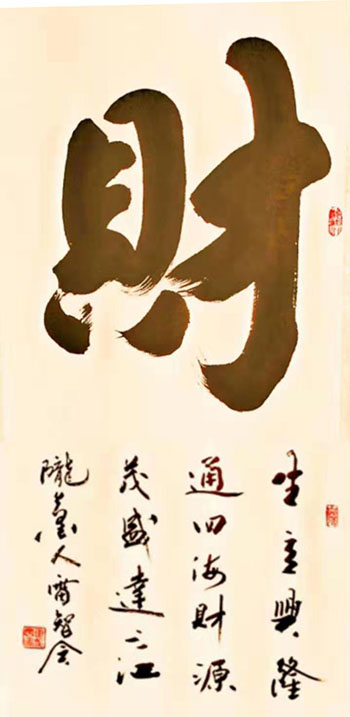 財
生意興隆
通四海財源
茂盛達三江
隴墨人雷智会